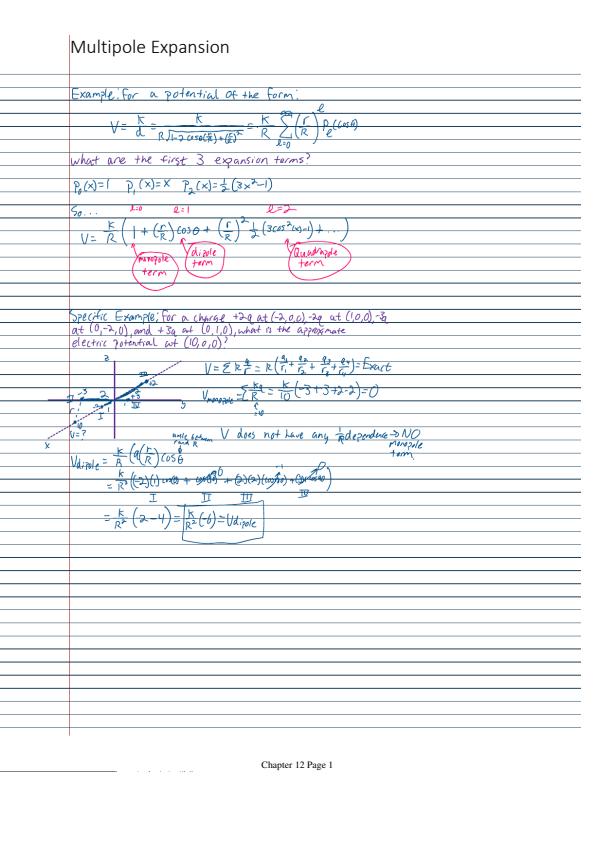 Multipole Expansion
Example: For a potential of the form:
V = k/d = k/(R√(1-2 cosθ(r/R)+(r/R)²)) = k/R ∑_{l=0}^{∞} (r/R)^l P_l(cosθ)
What are the first 3 expansion terms?
P₀(x)=1 P₁(x)=x P₂(x)=½(3x²-1)
So... l=0 l=1 l=2
V = k/R (1 + (r/R) cosθ + (r/R)² ½(3cos²(x)-1) + ...)
monopole term dipole term Quadrapole term
Specific Example: For a charge +2q at (-2,0,0), -2q at (1,0,0), -3q
at (0,-2,0), and +3q at (0,1,0), what is the approximate
electric potential at (10,0,0)?
z
V = ∑ k q/r = k(q₁/r₁ + q₂/r₂ + q₃/r₃ + q₄/r₄) = Exact
V_monopole = ∑ kq/R = k/10 (-3+3+2-2) = 0
y
x
V=?
V does not have any 1/R dependence → NO
monopole
term.
angle between r and R
V_dipole = k/R (q(r/R) cosθ
I II III IV
= k/R² (2-4) = k/R² (-6) = V_dipole
Chapter 12 Page 1